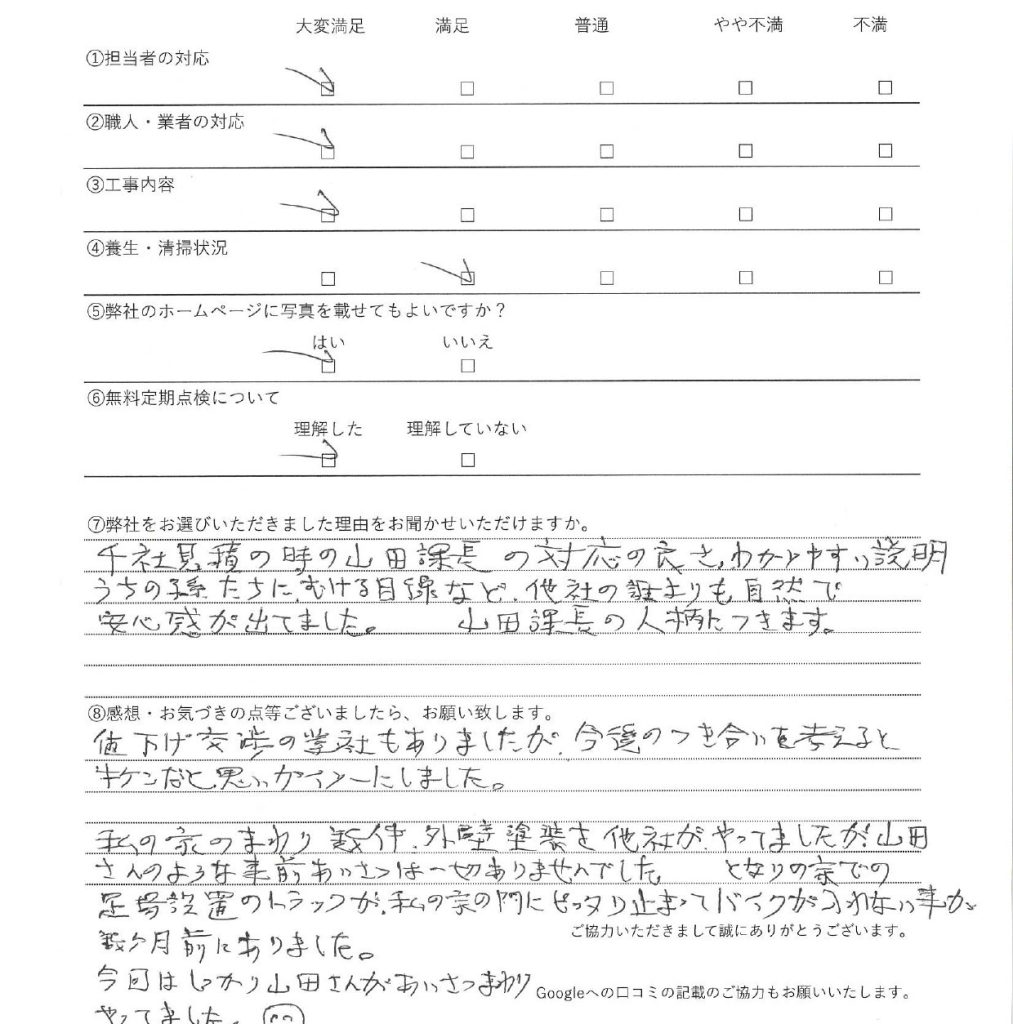 大変満足 満足 普通 やや不満 不満
①担当者の対応
□ □ □ □ □
②職人・業者の対応
□ □ □ □ □
③工事内容
□ □ □ □ □
④養生・清掃状況
□ □ □ □ □
⑤弊社のホームページに写真を載せてもよいですか？
はい いいえ
□ □
⑥無料定期点検について
理解した 理解していない
□ □
⑦弊社をお選びいただきました理由をお聞かせいただけますか。
社見積の時の山田課長の対応の良さ、わかりやすい説明
うちの孫たちにむける目線など、他社の誰よりも自然で
安心感が出てました。 山田課長の人柄につきます。
⑧感想・お気づきの点等ございましたら、お願い致します。
値下げ交渉の業社もありましたが、今後のつき合いを考えると
キケンだと思い にしました。
私の家のまわり数件、外壁塗装を他社が、やってましたが、山田
さんのような事前あいさつは一切ありませんでした となりの家での
足場設置のトラックが、私の家の門にピッタリ止まってバイクが入れない事が
数ヶ月前にありました。
ご協力いただきまして誠にありがとうございます。
今回はしっかり山田さんがあいさつまわり
Googleへの口コミの記載のご協力もお願いいたします。
やってました。